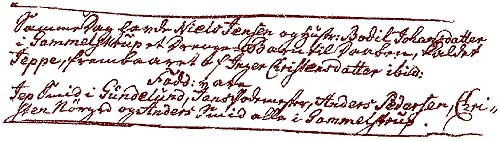 Samme Dag havde Niels Jensen og Hustr: Bodil Johansdatter
i Gammelstrup et Drenge Barn til Daaben, kaldet
Jeppe, frembaaret af Inger Christensdatter ibid:
Fadd: vare
Jep Smid i Gundelund, Jens Pedersen, Anders Pedersen, Chri-
sten Nörgrd og Anders Smid alle i Gammelstrup.